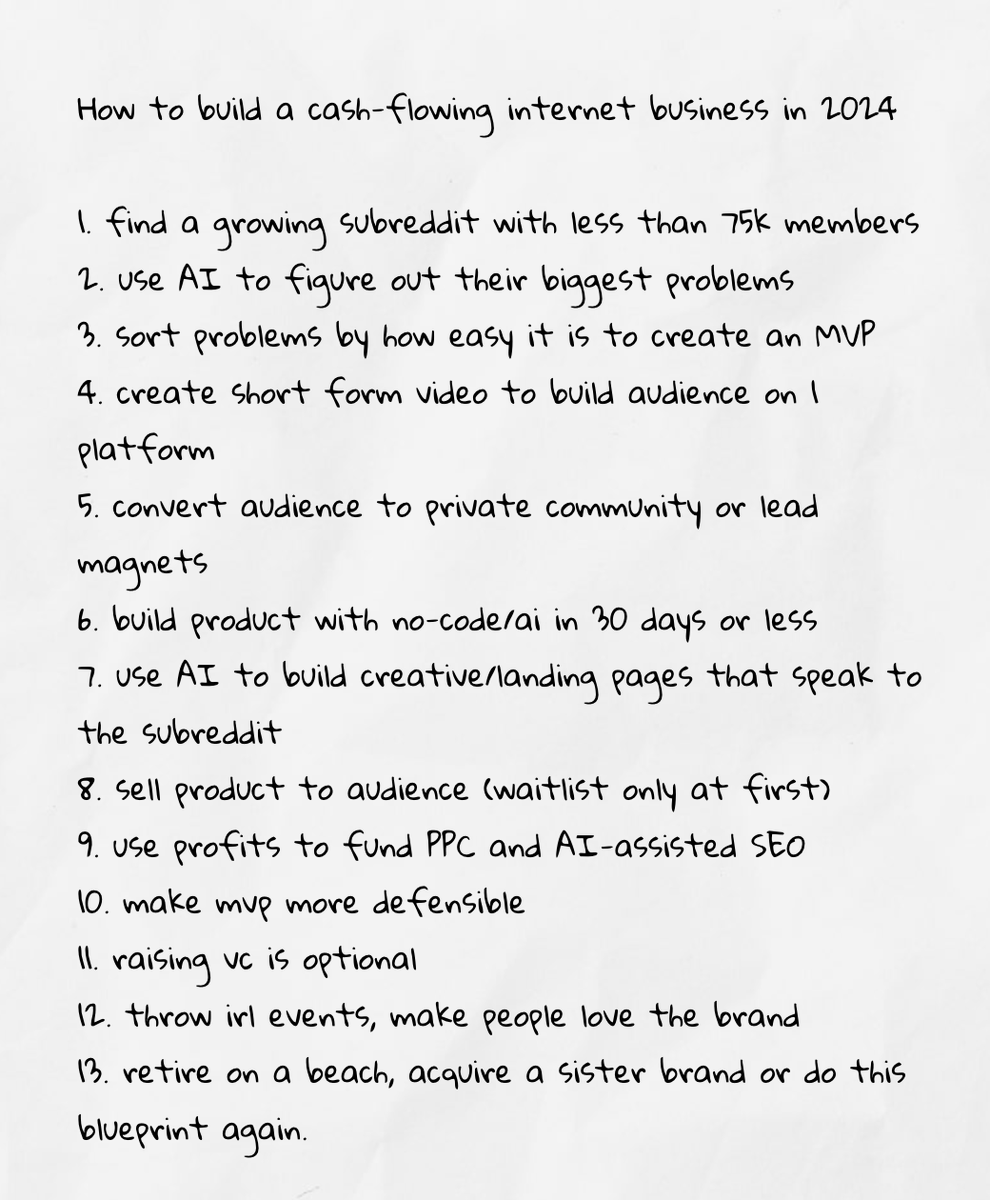 How to build a cash-flowing internet business in 2024
1. find a growing subreddit with less than 75k members
2. use AI to figure out their biggest problems
3. sort problems by how easy it is to create an MVP
4. create short form video to build audience on 1
platform
5. convert audience to private community or lead
magnets
6. build product with no-code/ai in 30 days or less
7. use AI to build creative/landing pages that speak to
the subreddit
8. sell product to audience (waitlist only at first)
9. use profits to fund PPC and AI-assisted SEO
10. make mvp more defensible
11. raising vc is optional
12. throw irl events, make people love the brand
13. retire on a beach, acquire a sister brand or do this
blueprint again.